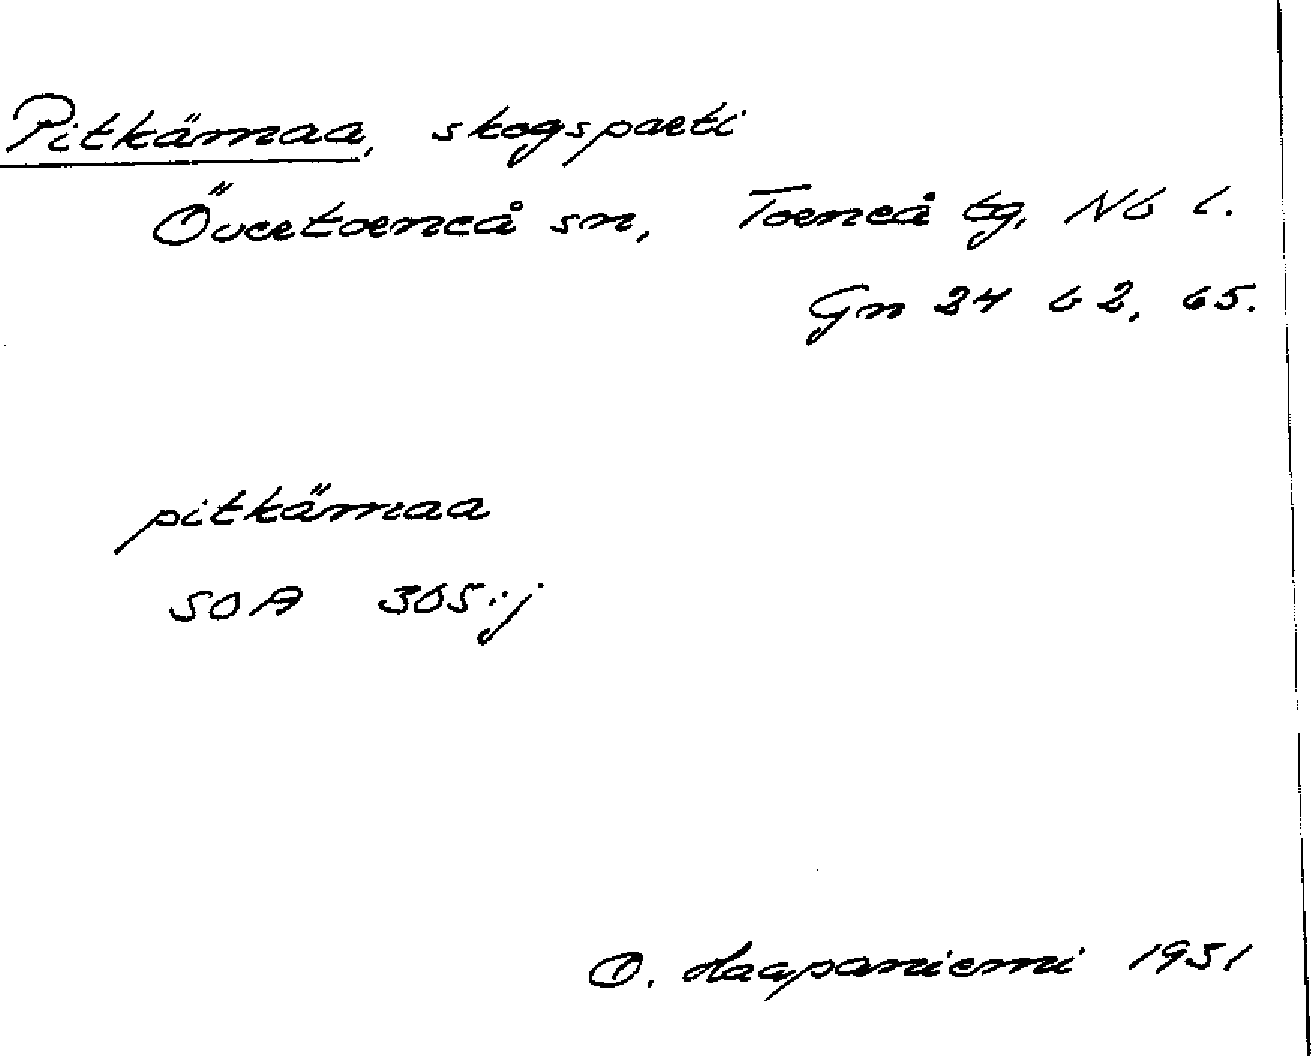 Pitkämaa, skogsparti
Övertorneå sn, Torneå tg, Nb l.
Gn 24 b2, b5.
pitkämaa
SOA 305:j
O. Haapaniemi 1931